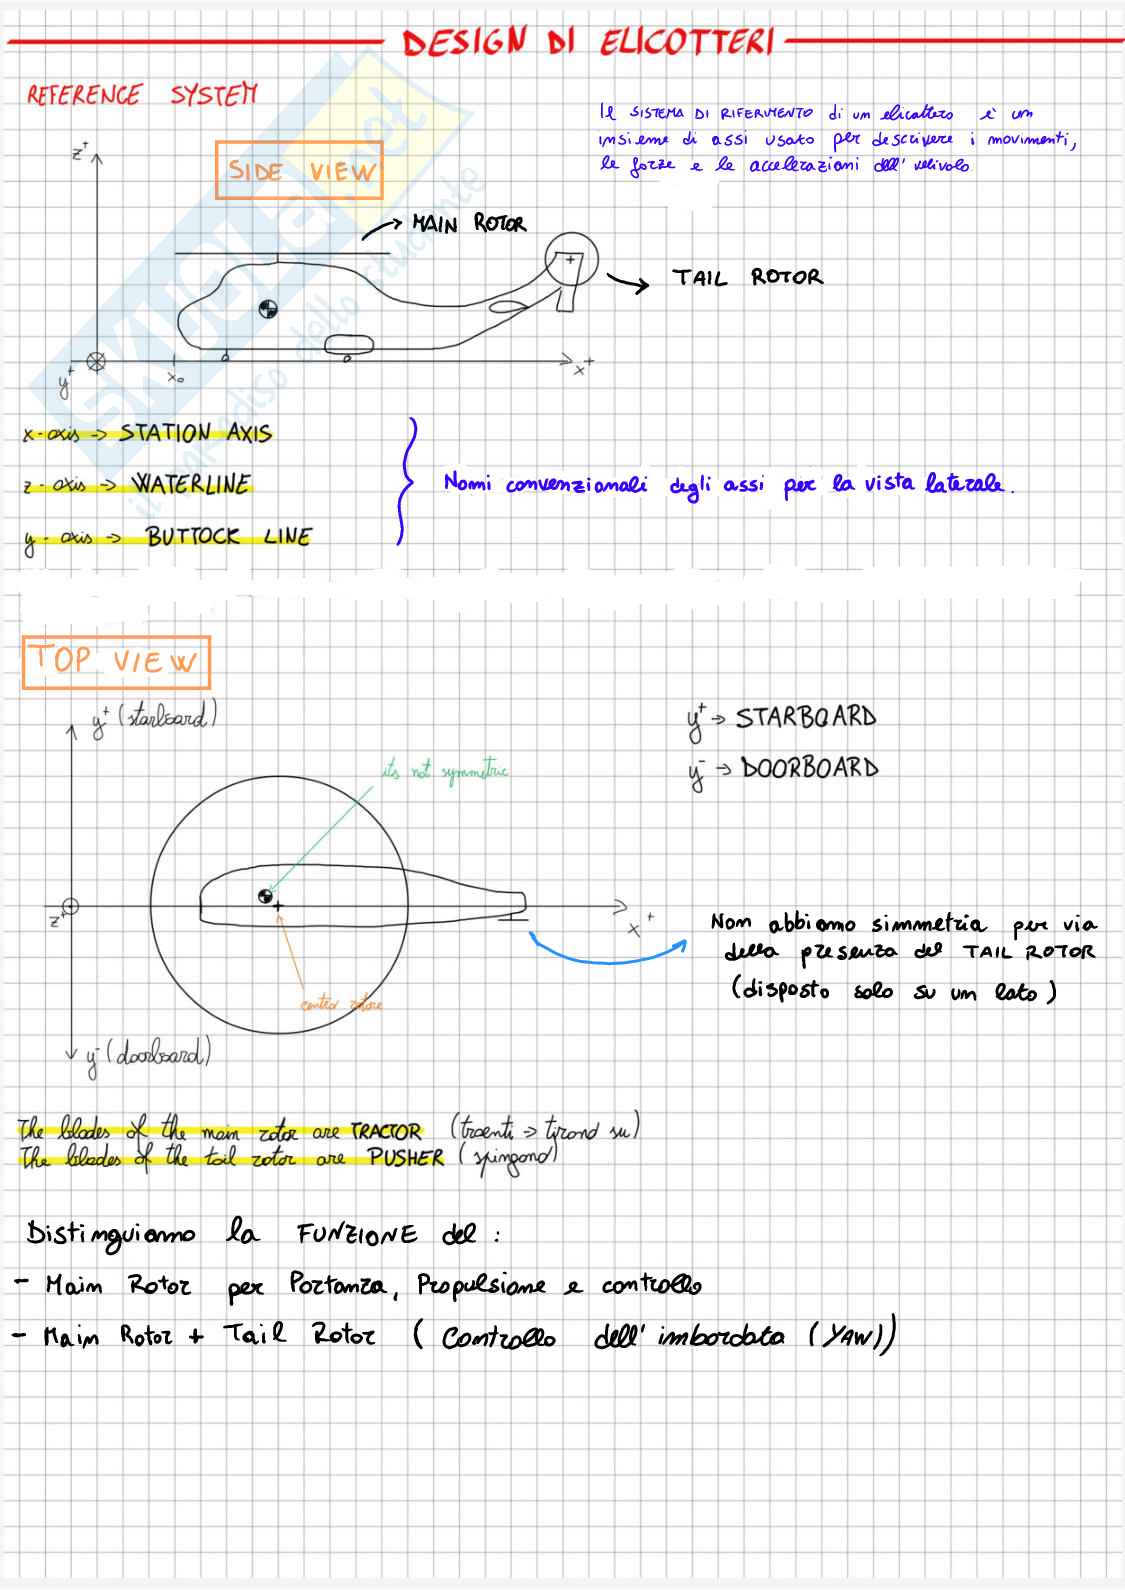 DESIGN DI ELICOTTERI
REFERENCE SYSTEM
Il SISTEMA DI RIFERIMENTO di un elicottero è un
insieme di assi usato per descrivere i movimenti,
le forze e le accelerazioni dell' velivolo
z+
SIDE VIEW
MAIN ROTOR
TAIL ROTOR
y+
x₀
x+
x-axis -> STATION AXIS
z-axis -> WATERLINE
y-axis -> BUTTOCK LINE
Nomi convenzionali degli assi per la vista laterale.
SKUOLA.net
il paradiso dello studente
TOP VIEW
y+ (starboard)
y+ -> STARBOARD
y- -> DOORBOARD
its not symmetric
z+
x+
Non abbiamo simmetria per via
della presenza del TAIL ROTOR
(disposto solo su un lato)
centro rotore
y- (doorboard)
The blades of the main rotor are TRACTOR (traenti -> tirond su)
The blades of the tail rotor are PUSHER (spingond)
Distinguiamo la FUNZIONE del :
- Main Rotor per Portanza, Propulsione e controllo
- Main Rotor + Tail Rotor ( Controllo dell' imbardata (YAW))